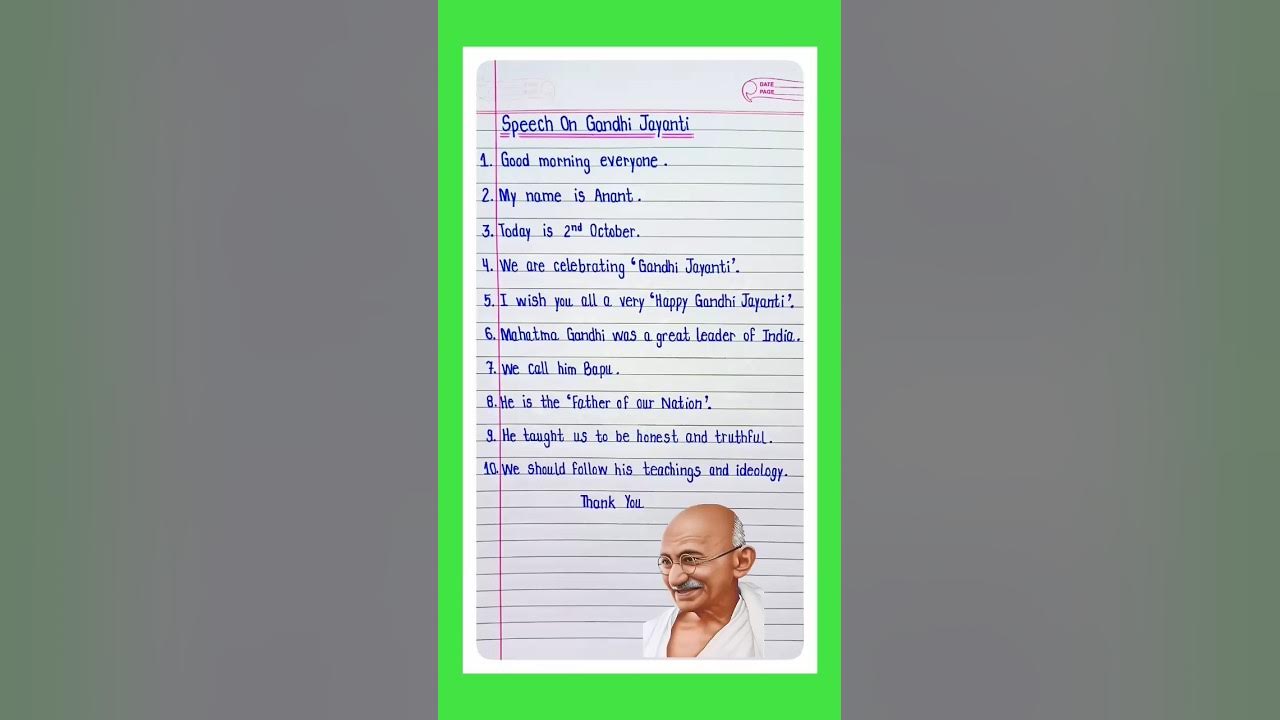 DATE
PAGE
Speech On Gandhi Jayanti
1. Good morning everyone.
2. My name is Anant.
3. Today is 2nd October.
4. We are celebrating ‘Gandhi Jayanti’.
5. I wish you all a very ‘Happy Gandhi Jayanti’.
6. Mahatma Gandhi was a great leader of India.
7. We call him Bapu.
8. He is the ‘Father of our Nation’.
9. He taught us to be honest and truthful.
10. We should follow his teachings and ideology.
Thank You